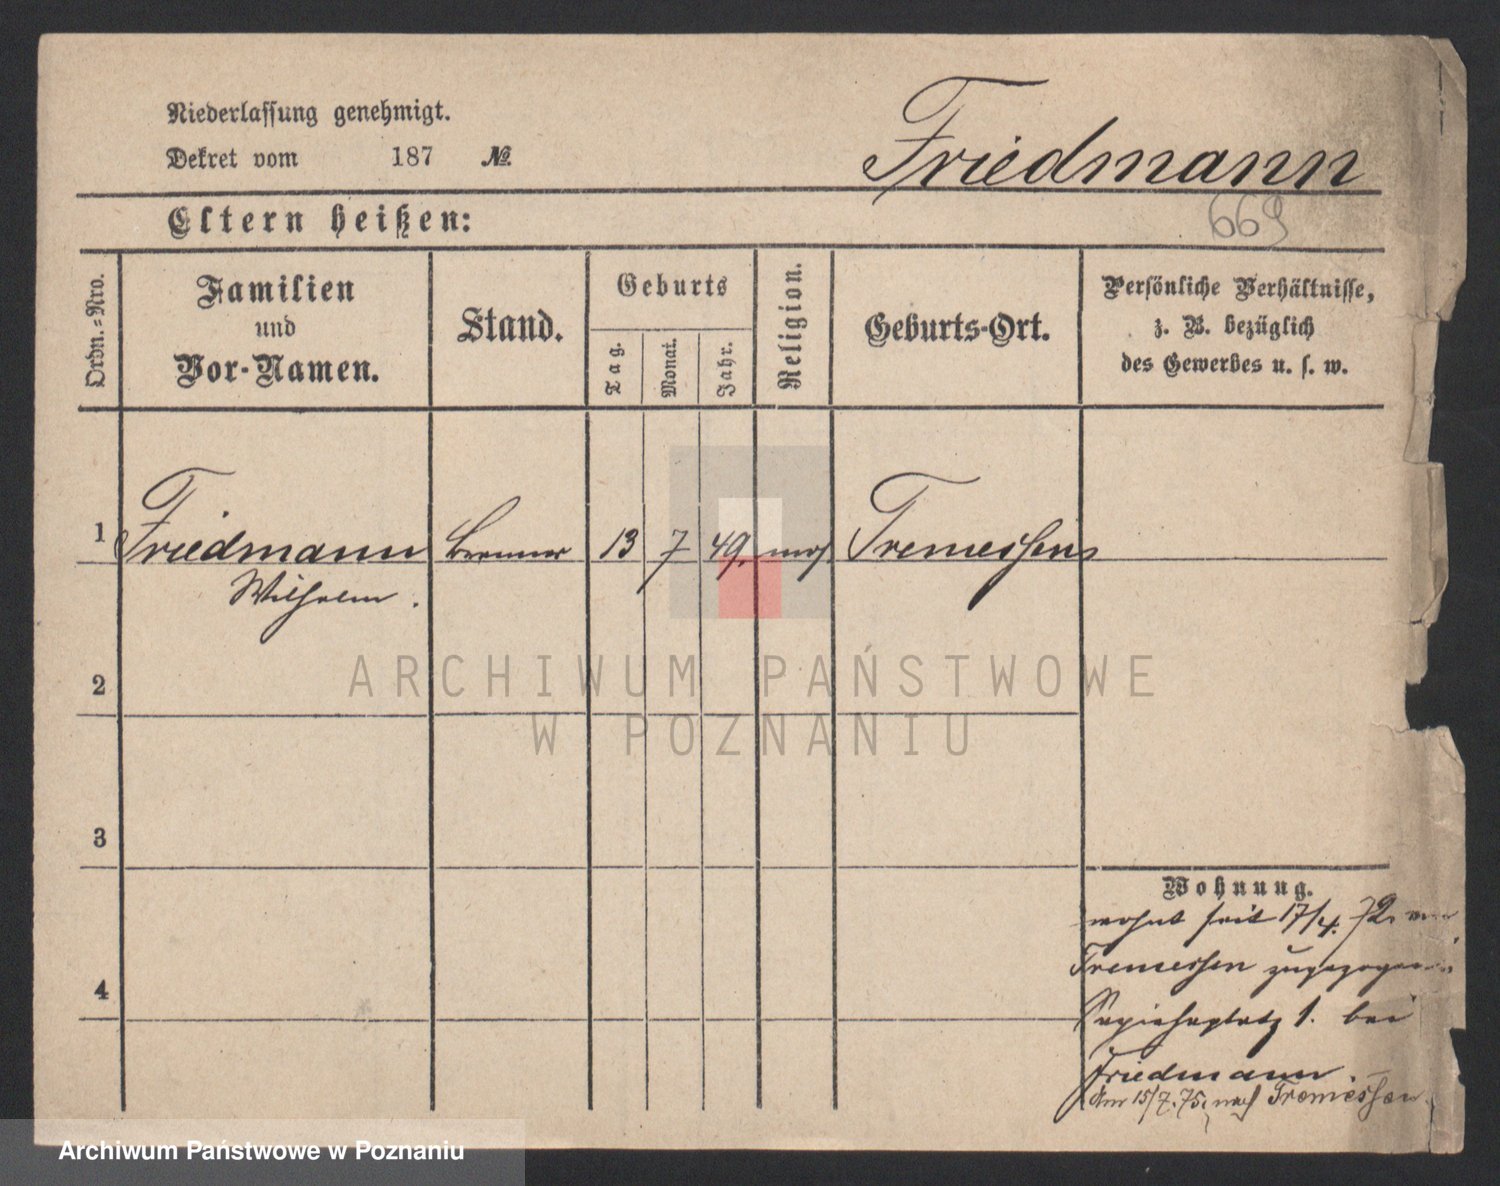 Niederlassung genehmigt.
Dekret vom 187 №.
Friedmann
669
Eltern heißen:
Ordn.=Nro.
Familien
und
Vor-Namen.
Stand.
Geburts
Tag.
Monat.
Jahr.
Religion.
Geburts-Ort.
Persönliche Verhältnisse,
z. B. bezüglich
des Gewerbes u. s. w.
1 Friedmann Brenner 13 7 49. mos. Tremessen
Wilhelm.
2
3
4
Wohnung.
wohnt seit 17/4. 72. von
Tremessen zugezogen
Sapiehaplatz 1. bei
Friedmann.
Am 15/7. 75. nach Tremessen.
ARCHIWUM PAŃSTWOWE
W POZNANIU
Archiwum Państwowe w Poznaniu